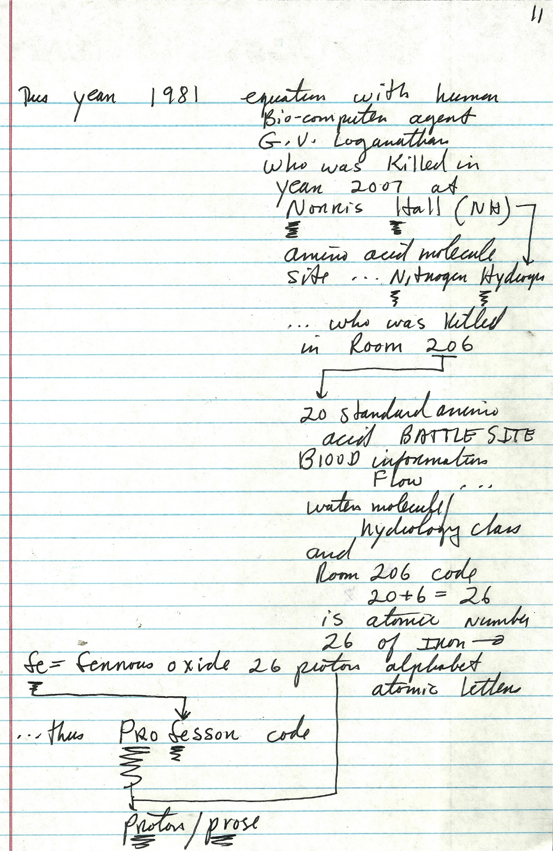 11
This year 1981 equation with human
Bio-computer agent
G.V. Loganathan
who was killed in
year 2007 at
Norris Hall (NH)
amino acid molecule
site ... Nitrogen Hydrogen
... who was killed
in Room 206
20 standard amino
acid BATTLE SITE
BlOOD information
Flow ...
water molecule/
hydrology class
and
Room 206 code
20+6 = 26
is atomic number
26 of Iron →
fe = ferrous oxide 26 proton alphabet
atomic letters
... thus PRO fessor code
Proton/prose